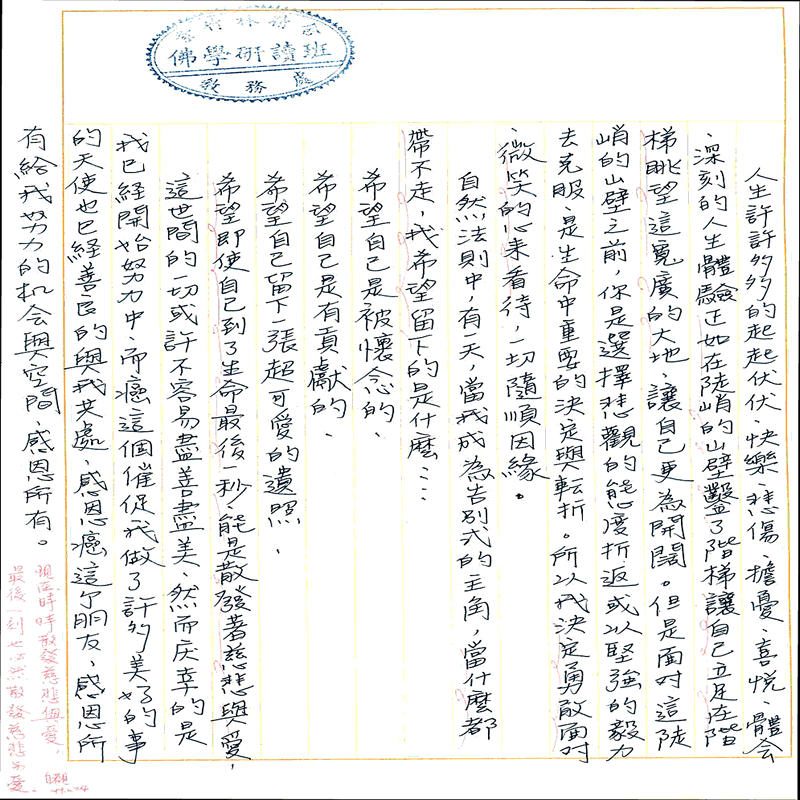 佛學研讀班
教務處
人生許許多多的起起伏伏、快樂、悲傷、擔憂、喜悅、體會
、深刻的人生體驗正如在陡峭的山壁鑿了階梯讓自己立足在階
梯眺望這寬廣的大地、讓自己更為開闊。但是面对這陡
峭的山壁之前，你是選擇悲觀的態度折返或以堅強的毅力
去克服、是生命中重要的決定與転折。所以我決定勇敢面对
、微笑的心来看待，一切隨順因緣。
自然法則中，有一天，當我成為告別式的主角，當什麼都
帶不走，我希望留下的是什麼⋯⋯
希望自己是被懷念的、
希望自己是有貢獻的、
希望自己留下一張超可愛的遺照、
希望即使自己到了生命最後一秒，能是散發著慈悲與愛，
這世間的一切或許不容易盡善盡美、然而庆幸的是
我已經開始努力中、而癌這個催促我做了許多美好的事
的天使也已經善良的與我共處、感恩癌這个朋友、感恩所
有給我努力的机会與空間、感恩所有。
現在時時散發慈悲與愛，
最後一刻也必然散發慈悲與愛。